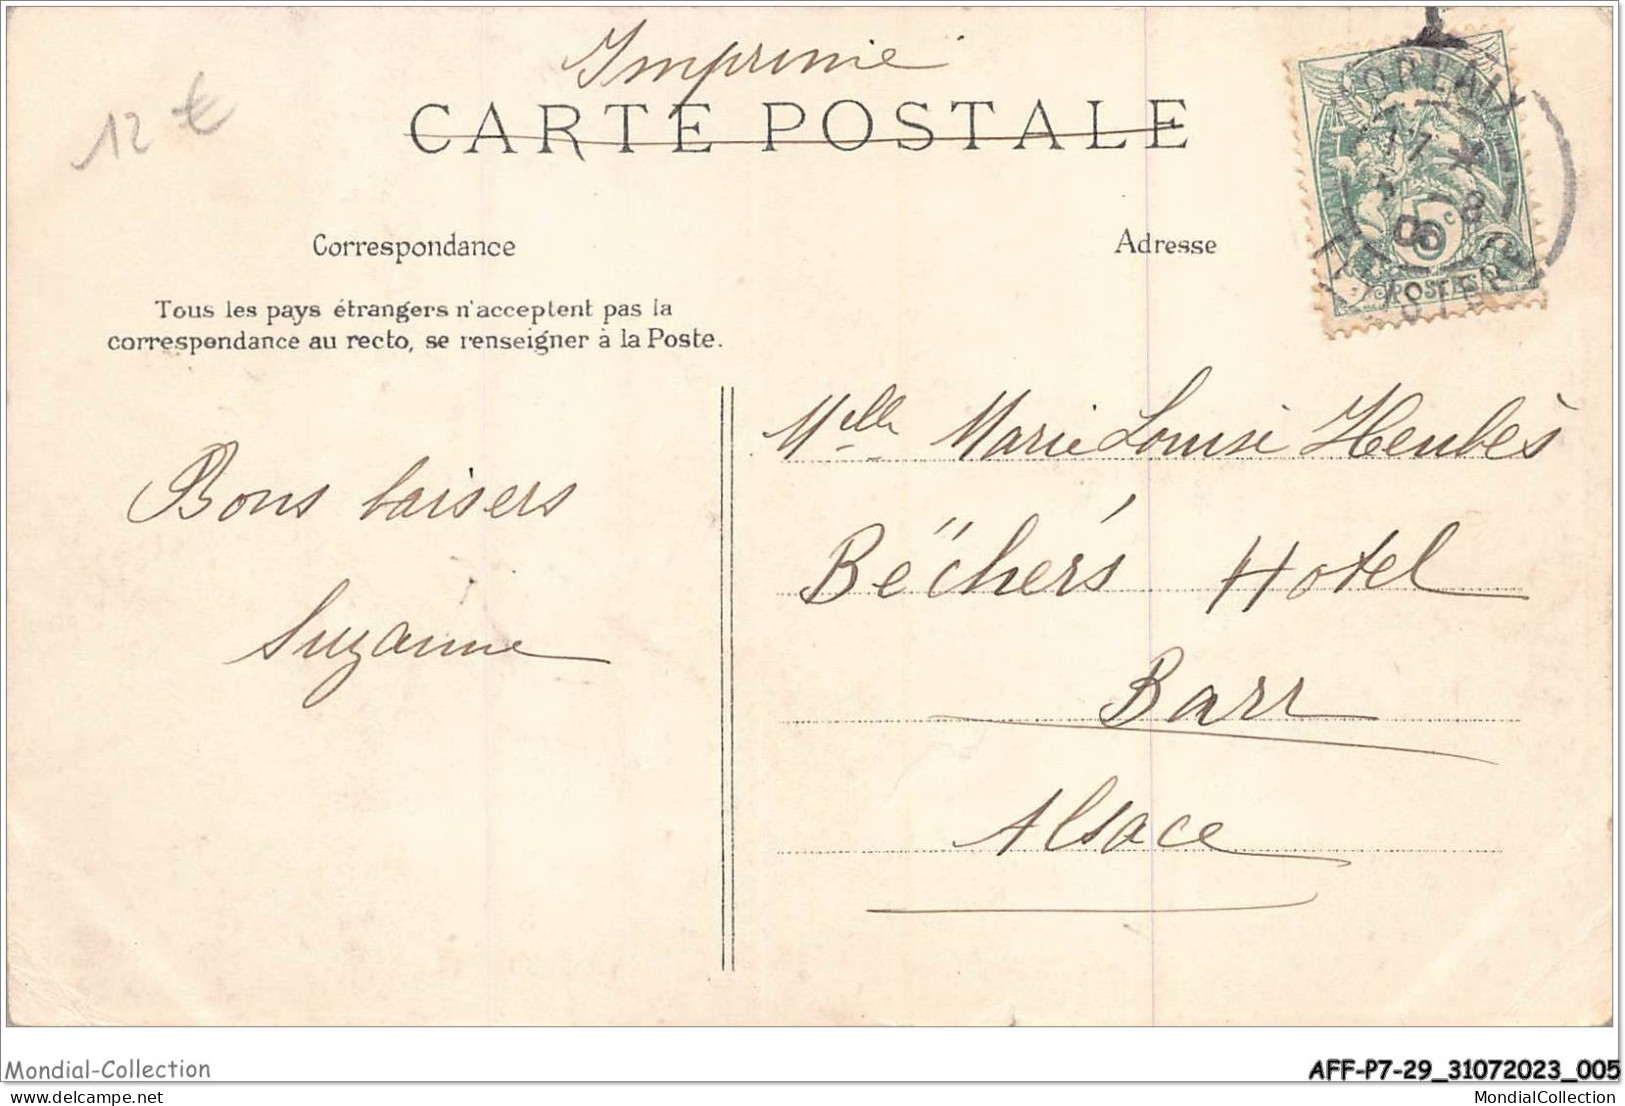 Imprimé
CARTE POSTALE
12 €
MORLAIX
17 * 5
8
06
FINISTERE
5c
POSTES
Correspondance
Adresse
Tous les pays étrangers n'acceptent pas la
correspondance au recto, se renseigner à la Poste.
Bons baisers
Suzanne
Melle Marie Louise Heubès
Bëcher's Hotel
Barr
Alsace
Mondial-Collection
AFF-P7-29_31072023_005
delcampe.net
MondialCollection